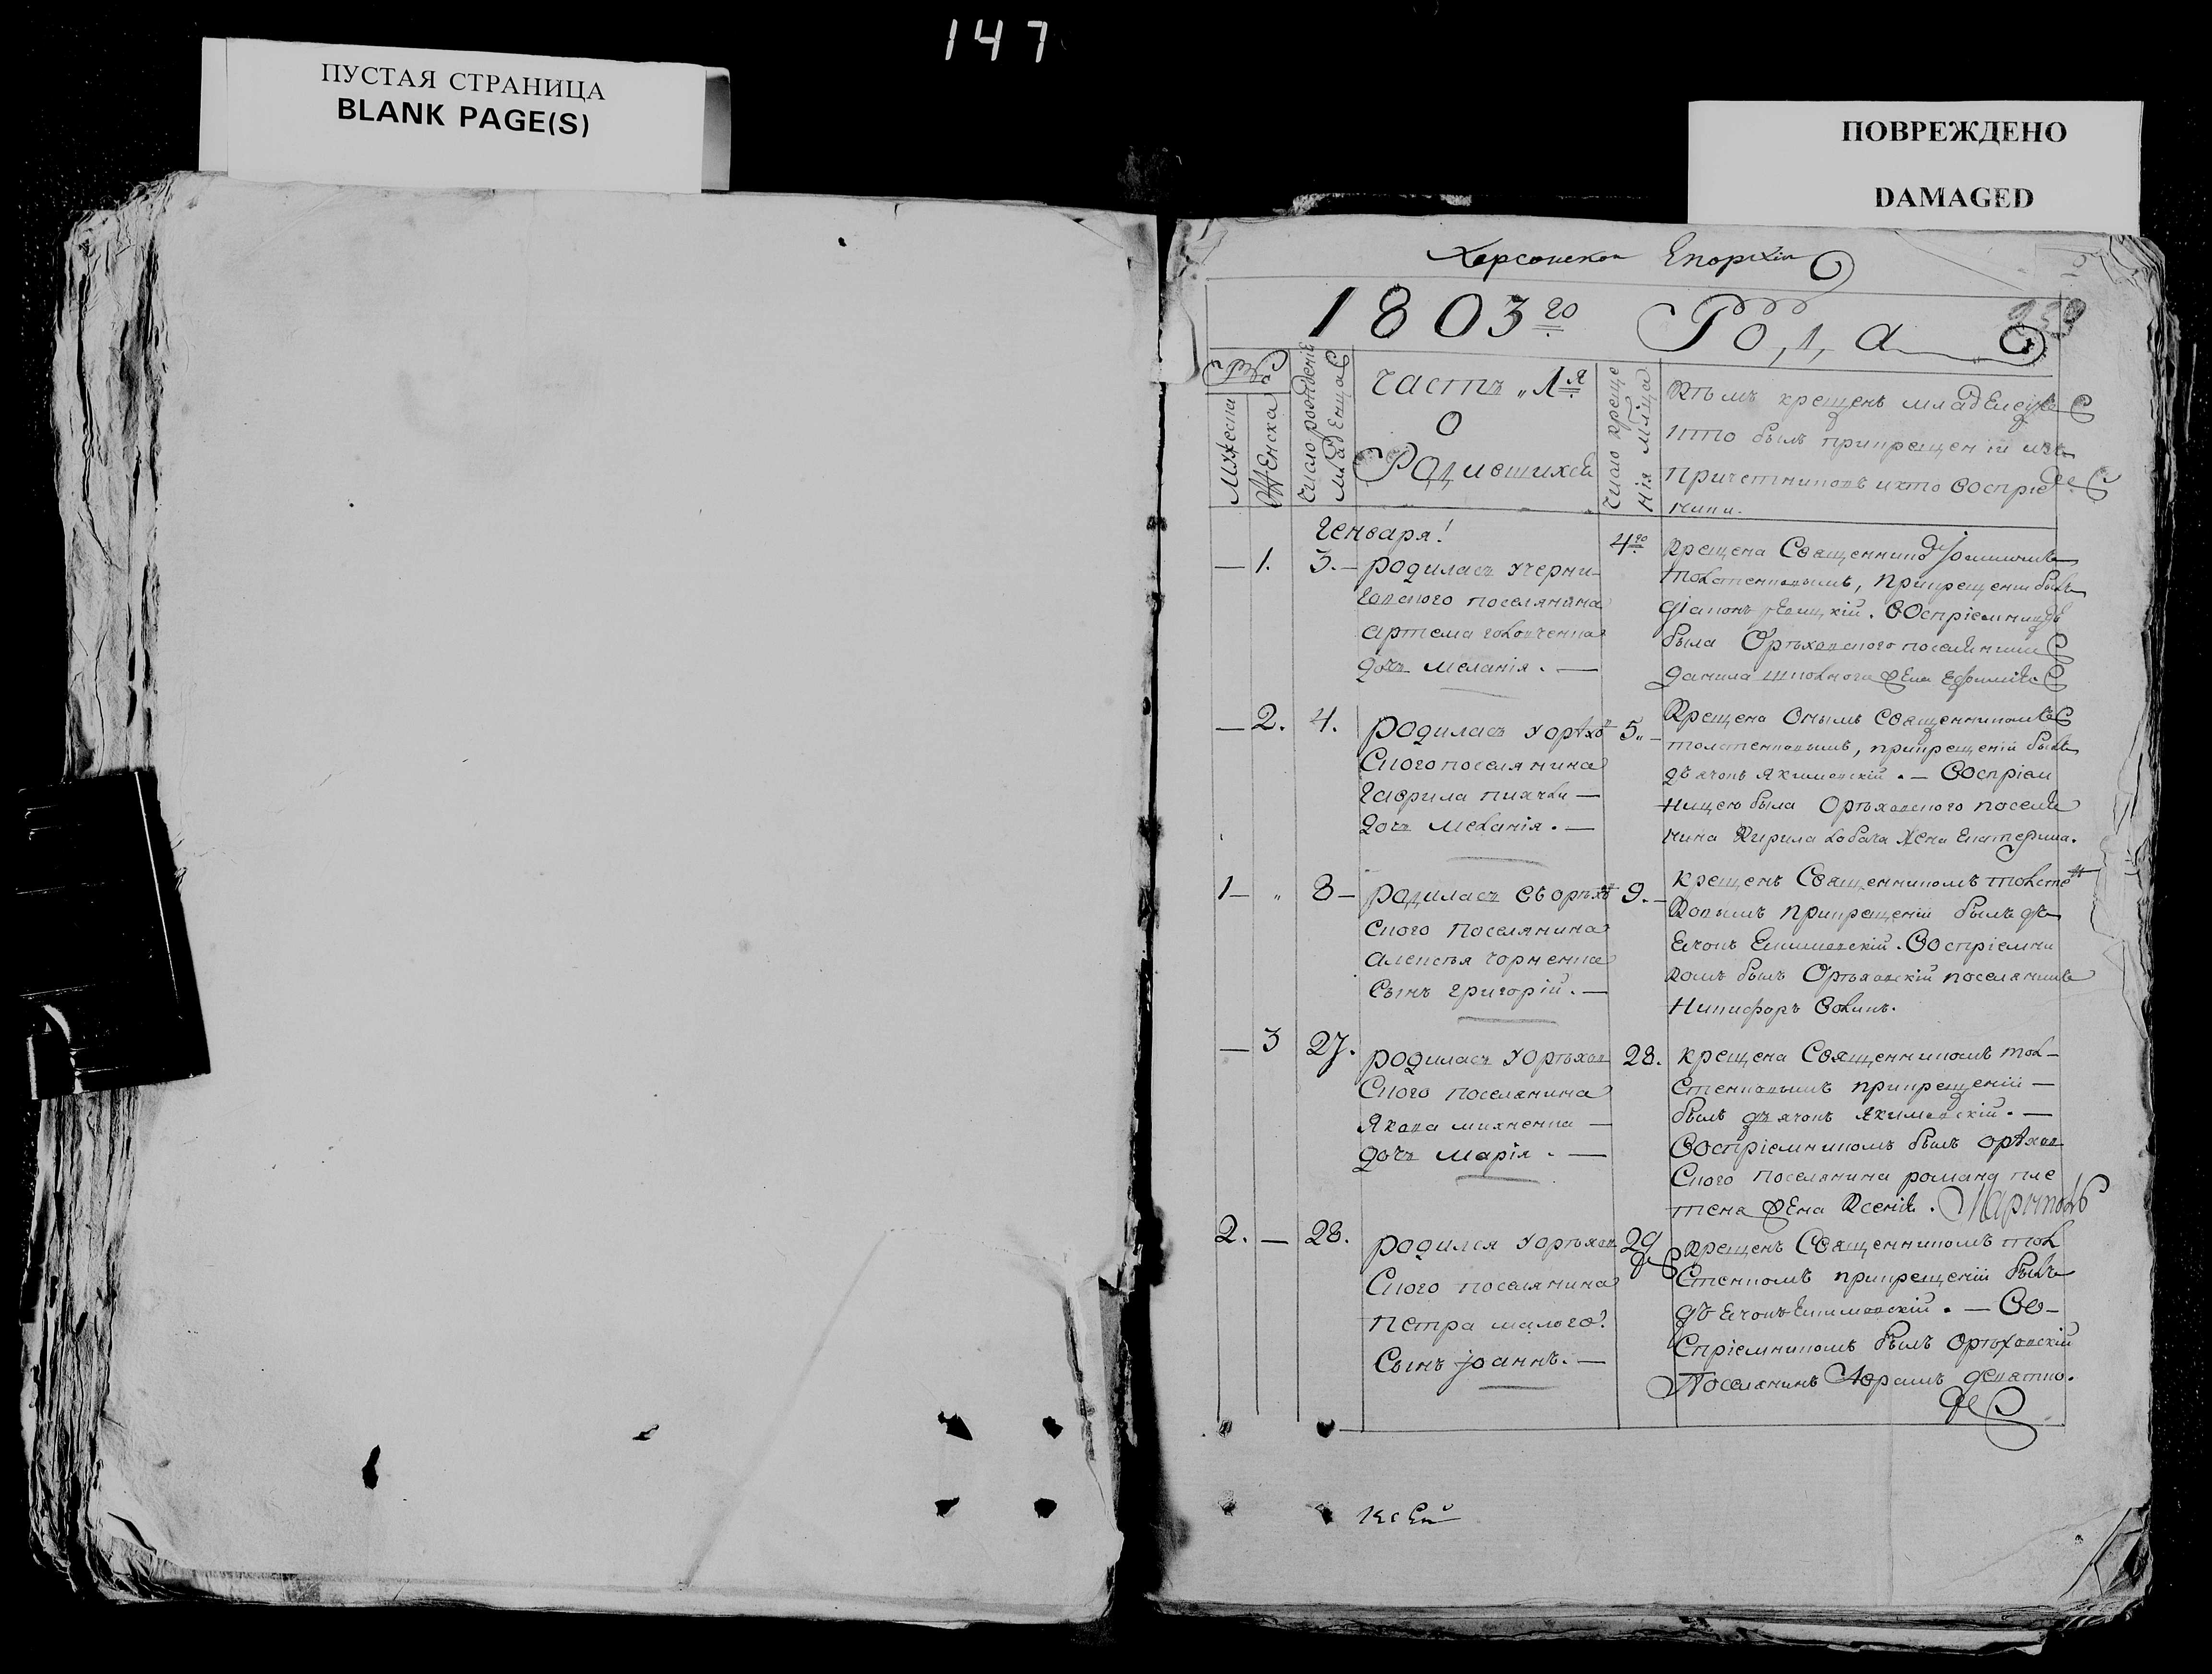 147
ПУСТАЯ СТРАНИЦА
BLANK PAGE(S)
ПОВРЕЖДЕНО
DAMAGED
Херсонской Епархіи
1803го Года
Мужеска
Женска
Число рожденія
младенца
Часть 1я
о
Родившихся
Число креще
нія мѣсяца
Кѣмъ крещенъ младенецъ
кто былъ при крещеніи изъ
причетниковъ и кто воспріе
мники.
Генваря!
— 1. 3. — родиласъ у черни
говского поселянина
артема
дочъ меланія. —
4го
крещена Священникомъ Іоанномъ
толстенковымъ, прикрещеніи былъ
діаконъ воспріемницею
была Орѣховского поселянина
данила жена
— 2. 4. родиласъ у орѣхов
ского поселянина
гаврила —
дочъ меланія. —
5. —
Крещена онымъ священникомъ
толстенковымъ, прикрещеніи былъ
дьячокъ якимовскій. — Воспріем
ницею была Орѣховского поселя
нина Кирила лобача жена Екатерина.
1 — „ 8 — родилась с ворѣхов
ского поселянина
алексѣя чорненка
сынъ григорій. —
9. —
крещенъ Священникомъ толстен
ковымъ прикрещеніи былъ дь
ячокъ Екимовскій. Воспріемни
комъ былъ Орѣховскій поселянинъ
Никифоръ Воликъ.
— 3 27. родилась у орѣхов
ского поселянина
якова михненка —
дочъ марія. —
28.
крещена Священникомъ тол —
стенковымъ прикрещеніи —
былъ дьячокъ якимовскій. —
Воспріемникомъ былъ орѣхов
ского поселянина романа пле
тена жена Ксенія.
2. — 28. родился у орѣхов
ского поселянина
петра малого.
сынъ іоаннъ. —
29
крещенъ Священникомъ тол
стенкомъ прикрещеніи былъ
дьячокъ Екимовскій. — Во —
спріемникомъ былъ Орѣховскій
Поселянинъ